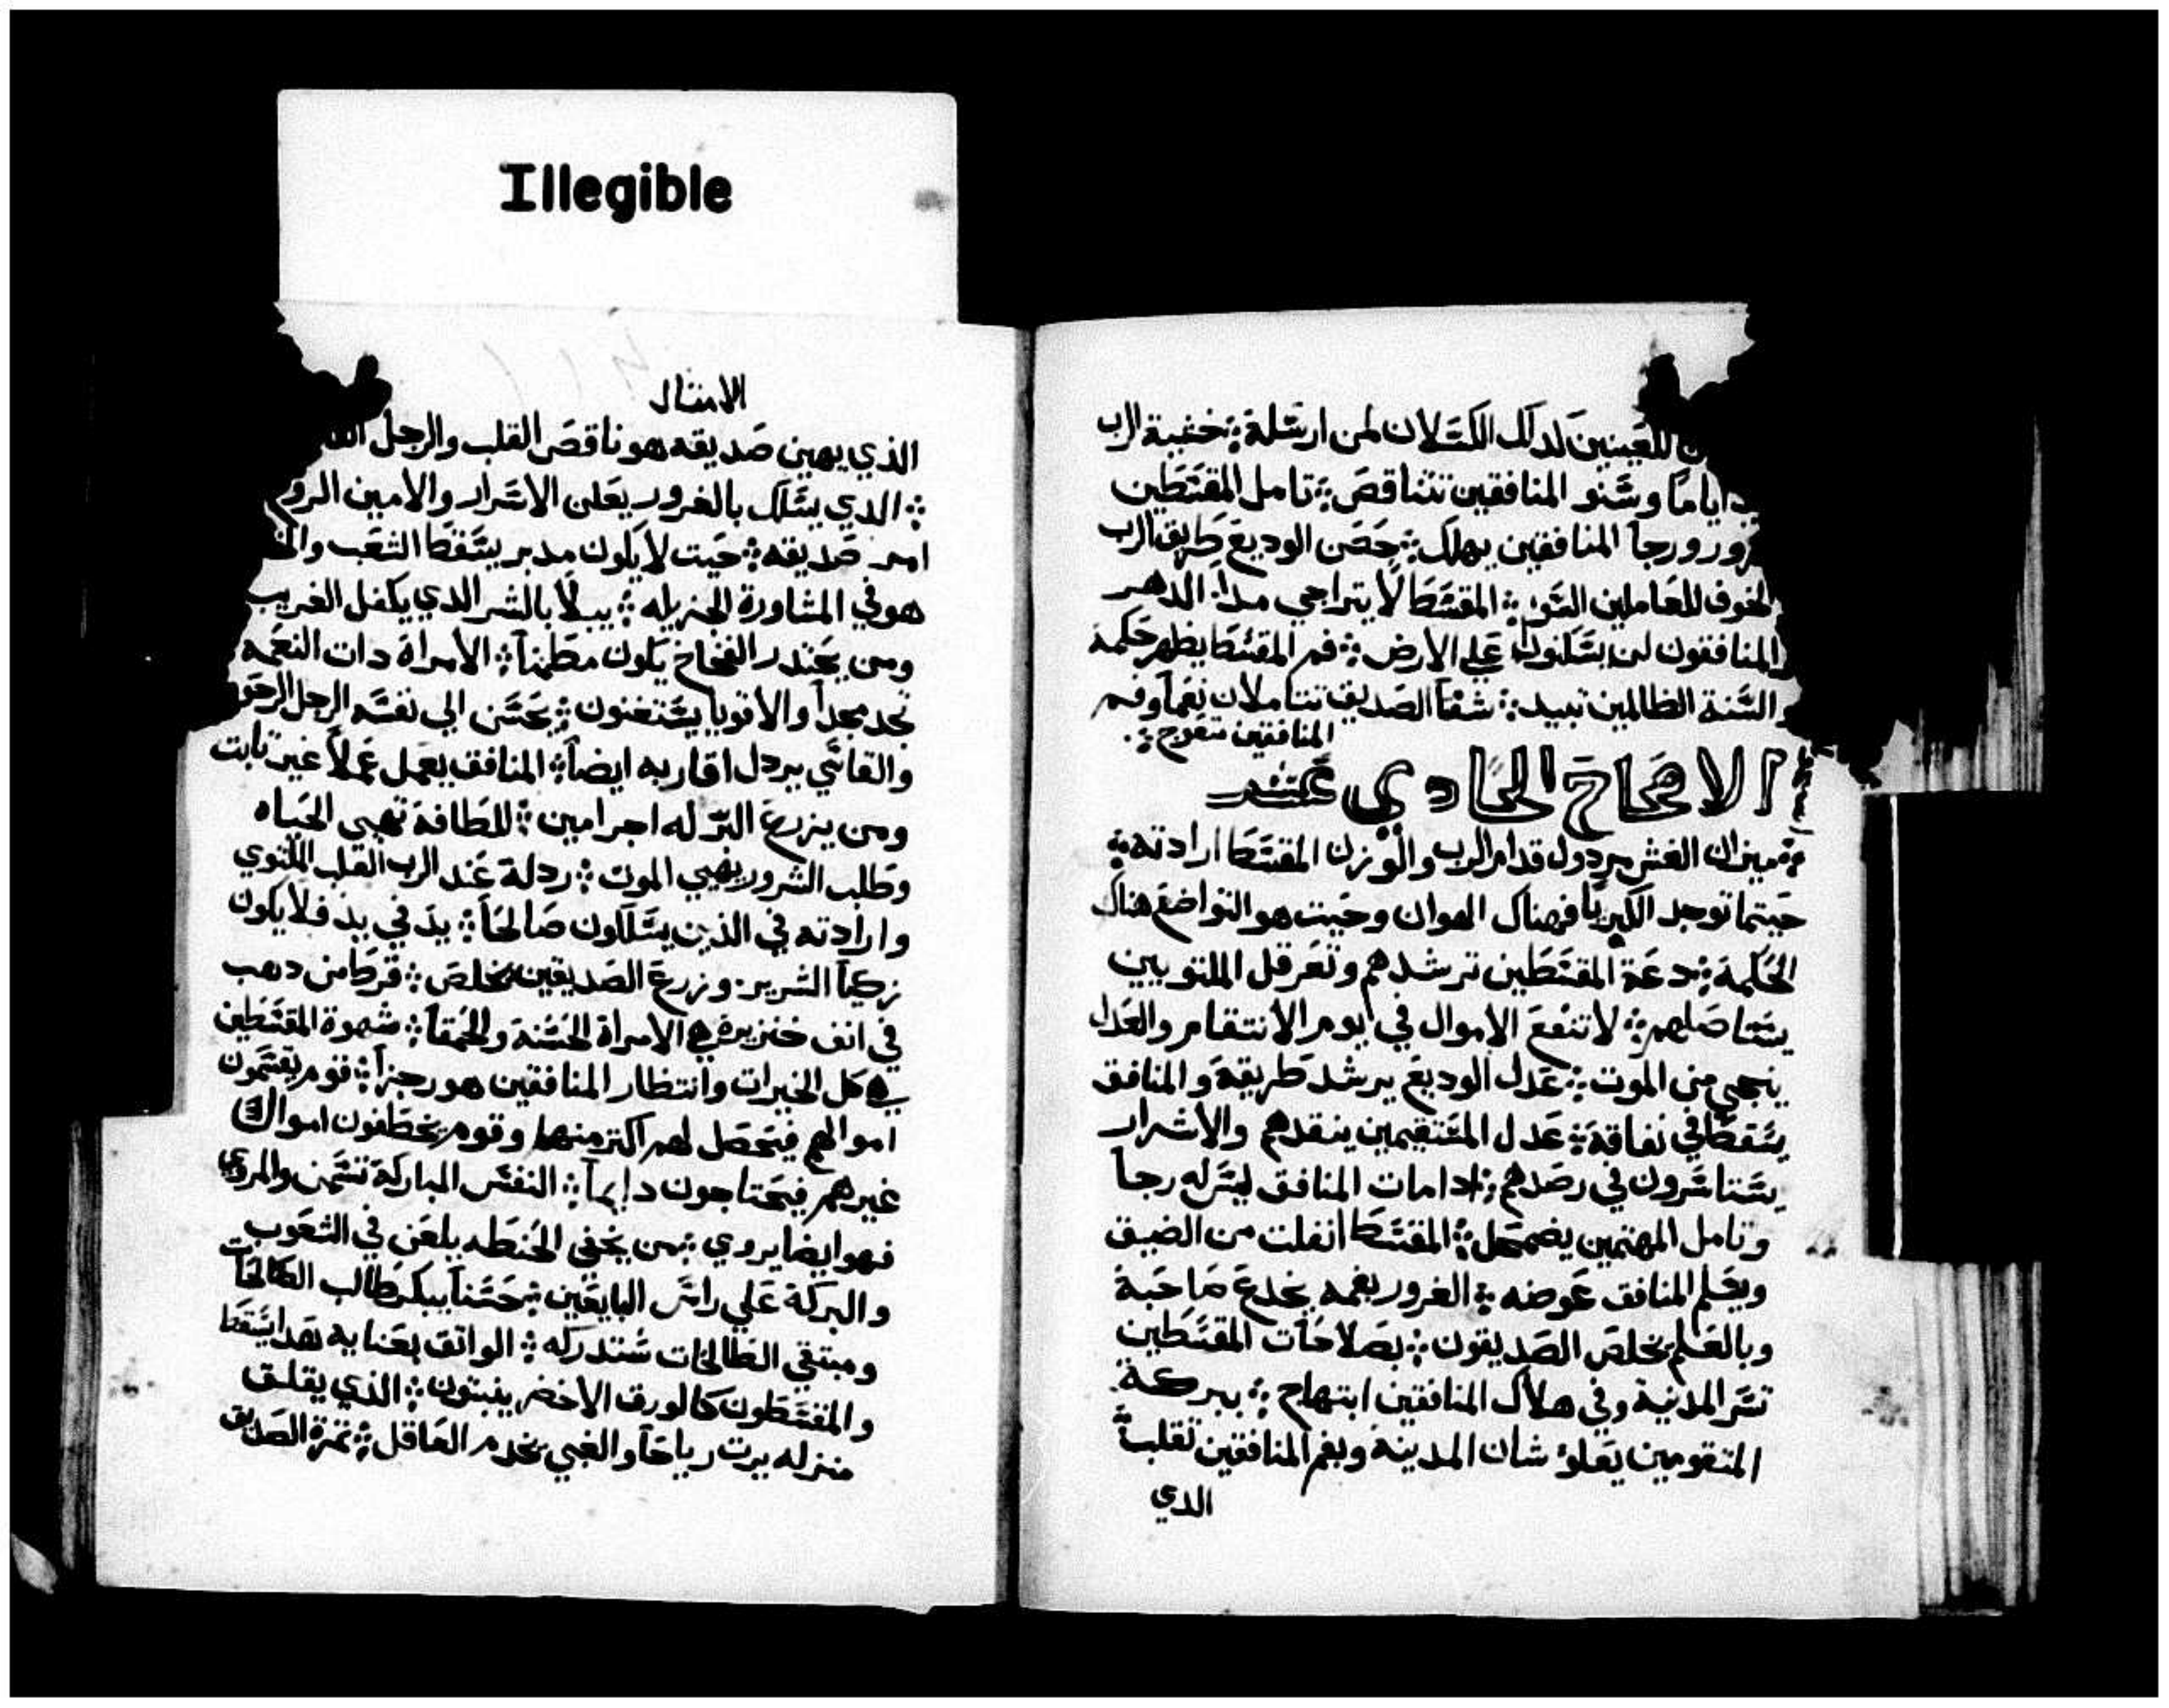 Illegible
للعينين لدلك الكسلان لمن ارسله ܀ خفية الرب
اياماً وسنو المنافقين تتناقص ܀ تامل المقسطين
ورجا المنافقين يهلك ܀ حصن الوديع طريق الرب
الخوف للعاملين السو ܀ المقسط لا يتراجي مدا الدهر
المنافقون لن يسكنوا علي الارض ܀ فم المقسط يظهر حكمة
السنة الظالمين تبيد ܀ شفتا الصديق تتاملان نعماً وفم
المنافقين تعوج ܀
الاصحاح الحادي عشر
ميزان الغش مردول قدام الرب والوزن المقسط ارادته ܀
حيتما توجد الكبريا فهناك الهوان وحيت هو التواضع هناك
الحكمة ܀ دعة المقسطين ترشدهم وتعرقل الملتويين
يستاصلهم ܀ لا تنفع الاموال في يوم الانتقام والعدل
ينجي من الموت ܀ عدل الوديع يرشد طريقة والمنافق
يسقط في نفاقة ܀ عدل المستقيمين ينقدهم والاشرار
يستاسرون في رصدهم ܀ ادا مات المنافق ليس له رجا
وتامل المهتمين يضمحل ܀ المقسط انفلت من الضيق
ويسلم المنافق عوضه ܀ الغرور بفمه يخدع صاحبة
وبالعلم يخلص الصديقون ܀ بصلاحات المقسطين
تسر المدنية وفي هلاك المنافقين ابتهاج ܀ ببركة
المتقومين يعلو شان المدينة وبفم المنافقين تقلب ܀
الدي
الامثال
الذي يهين صديقه هو ناقص القلب والرجل
܀ الدي يسلك بالغرور يعلن الاسرار والامين الروح
امر صديقه ܀ حيت لا يكون مدبر يسقط الشعب
هو في المشاورة الجزيله ܀ يبلا بالشر الدي يكفل الغريب
ومن يحتدر الفخاخ يكون مطمناً ܀ الامراة دات النعمه
تجد مجداً والاقويا يستغنون ܀ يحسن الي نفسه الرجل الرحوم
والقاسي يردل اقاربه ايضاً ܀ المنافق يعمل عملاً غير تابت
ومن يزرع البر له اجر امين ܀ اللطافة تهيي الحياه
وطلب الشرور يهيي الموت ܀ ردلة عند الرب القلب الملتوي
وارادته في الذين يسلكون صالحاً ܀ يد في يد فلا يكون
زكياً الشرير وزرع الصديقين يخلص ܀ قرط من دهب
في انف خنزيره هي الامراة الحسنة والحمقا ܀ شهوة المقسطين
هي كل الخيرات وانتظار المنافقين هو رجزاً ܀ قوم يقسمون
اموالهم فيحصل لهم اكتر منها وقوم يخطفون اموال
غيرهم فيحتاجون دايماً ܀ النفس المباركة تسمن والمروي
فهو ايضا يروي ܀ من يخفي الحنطه يلعن في الشعوب
والبركة علي راس البايعين ܀ حسناً يبكر طالب الصالحات
ومبتغي الطالحات ستدركه ܀ الواتق بغنايه هدا يسقط
والمقسطون كالورق الاخضر ينبتون ܀ الذي يقلق
منزله يرت رياحاً والغبي يخدم العاقل ܀ تمرة الصديق